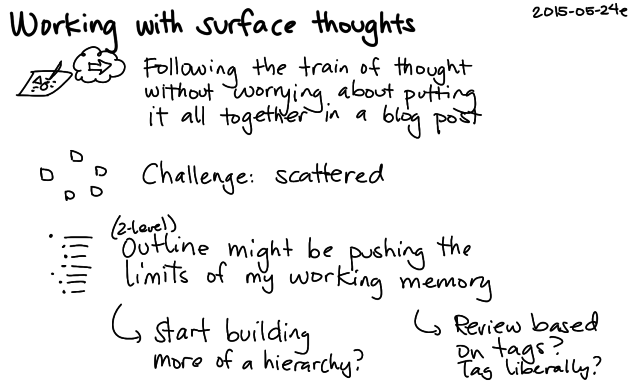 Working with surface thoughts
2015-05-24e
Following the train of thought
without worrying about putting
it all together in a blog post
Challenge: scattered
(2-level)
Outline might be pushing the
limits of my working memory
start building
more of a hierarchy?
Review based
on tags?
Tag liberally?